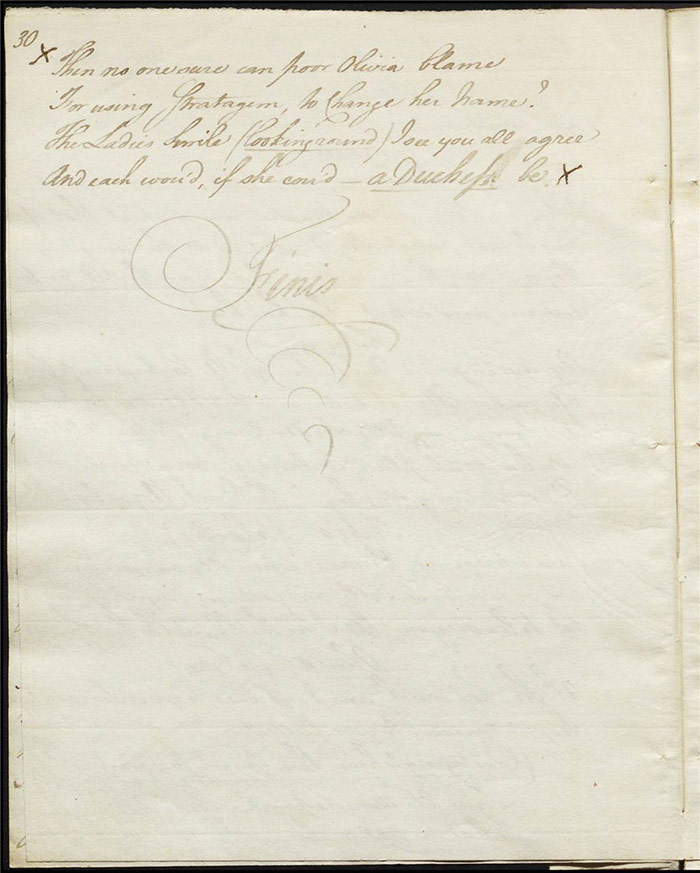 30
x Then no one sure can poor Olivia blame
For using Stratagem, to Change her Name?
The Ladies Smile (looking round) I see you all agree
And each wou'd, if she cou'd — a Duchess: be. x
Finis